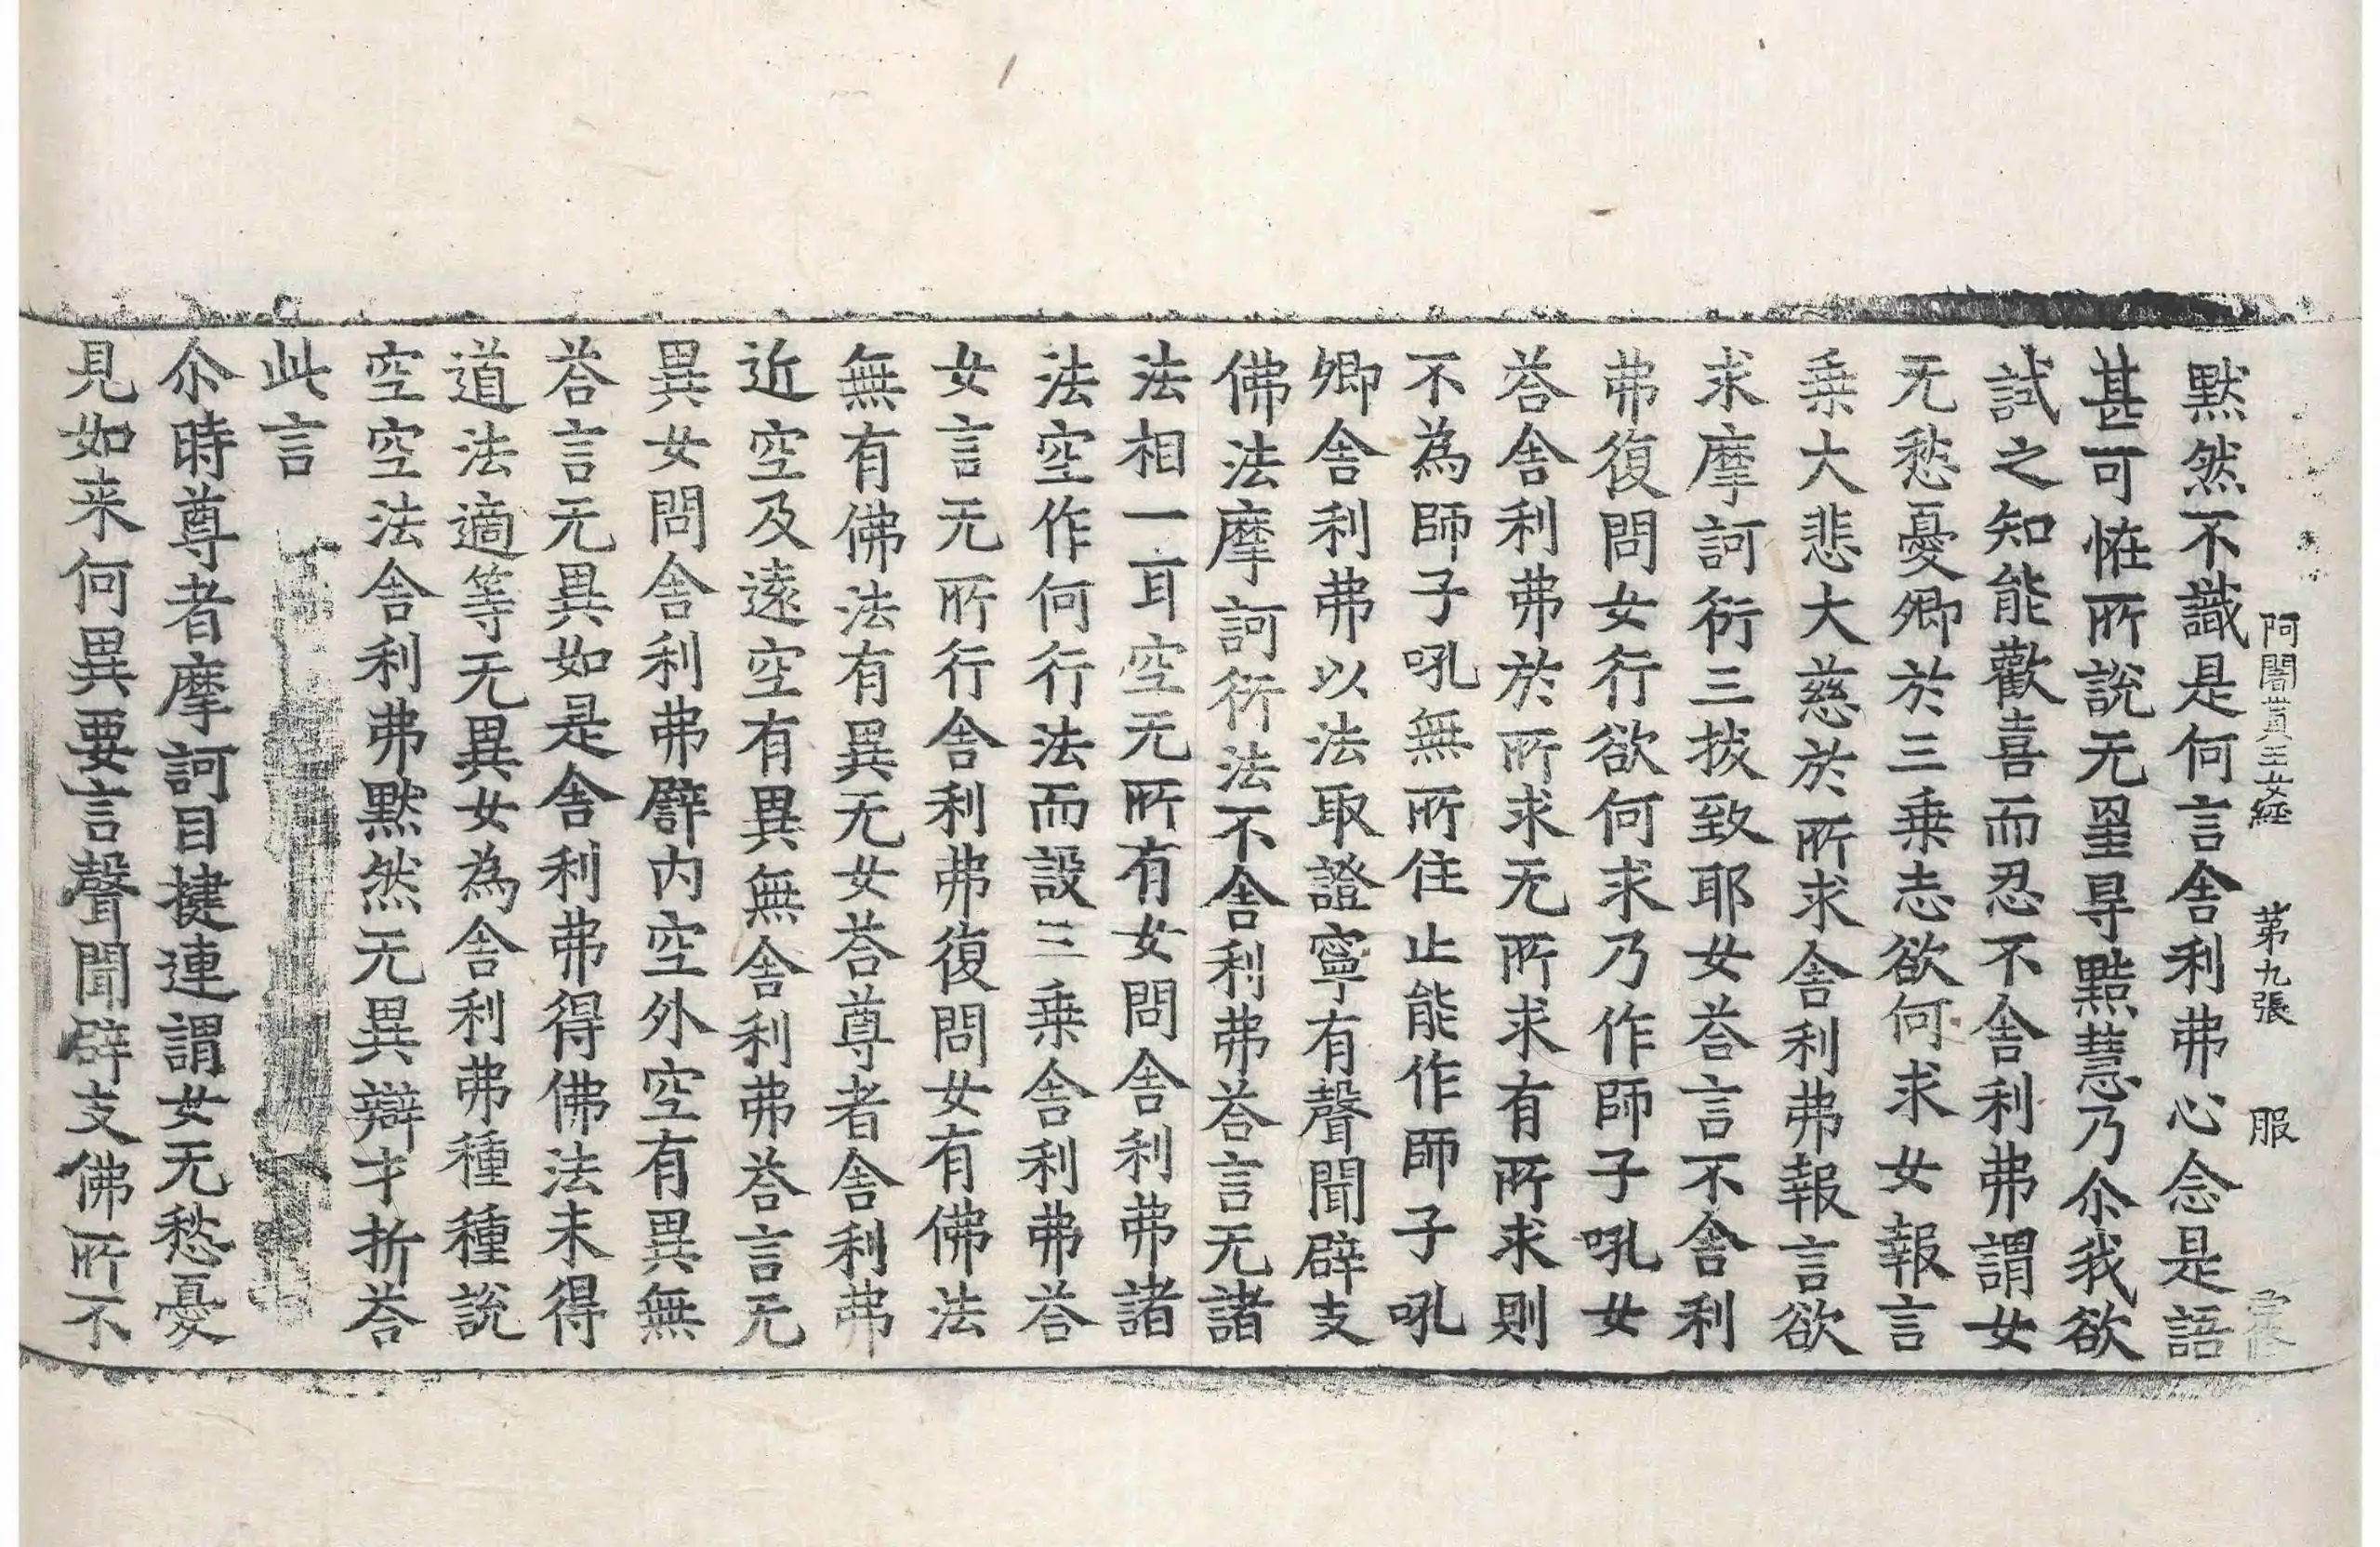 阿闍貰王女經 第九張 服
默然不識是何言舍利弗心念是語
甚可恠所說无量㝵黠慧乃尒我欲
試之知能歡喜而忍不舍利弗謂女
无愁憂卿於三乗志欲何求女報言
乗大悲大慈於所求舍利弗報言欲
求摩訶衍三拔致耶女荅言不舍利
弗復問女行欲何求乃作師子吼女
荅舍利弗於所求无所求有所求則
不為師子吼無所住止能作師子吼
卿舍利弗以法取證寧有聲聞辟支
佛法摩訶衍法不舍利弗荅言无諸
法相一耳空无所有女問舍利弗諸
法空作何行法而設三乗舍利弗荅
女言无所行舍利弗復問女有佛法
無有佛法有異无女荅尊者舍利弗
近空及遠空有異無舍利弗荅言无
異女問舍利弗譬内空外空有異無
荅言无異如是舍利弗得佛法未得
道法適等无異女為舍利弗種種說
空空法舍利弗默然无異辯才折荅
此言
尒時尊者摩訶目揵連謂女无愁憂
見如来何異要言聲聞辟支佛所不